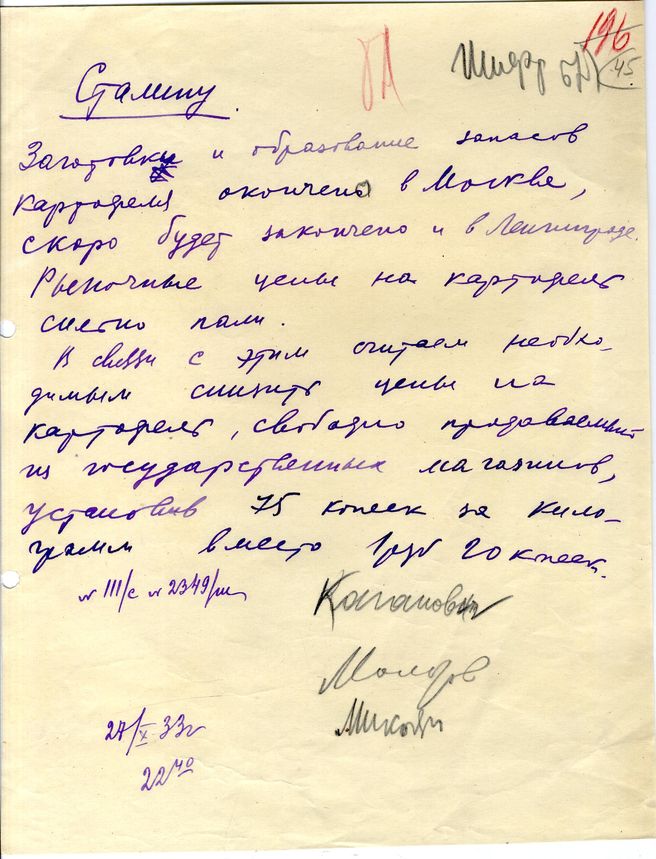 196
Шифр
45
Сталину.
Заготовки и образование запасов
картофеля окончено в Москве,
скоро будет закончено и в Ленинграде.
Рыночные цены на картофель
сильно пали.
В связи с этим считаем необхо-
димым снизить цены на
картофель, свободно продаваемый
из государственных магазинов,
установив 75 копеек за кило-
грамм вместо 1 руб 20 копеек.
Каганович
N III/с N 2349/ш
Молотов
Микоян
27/X 33г
22 40